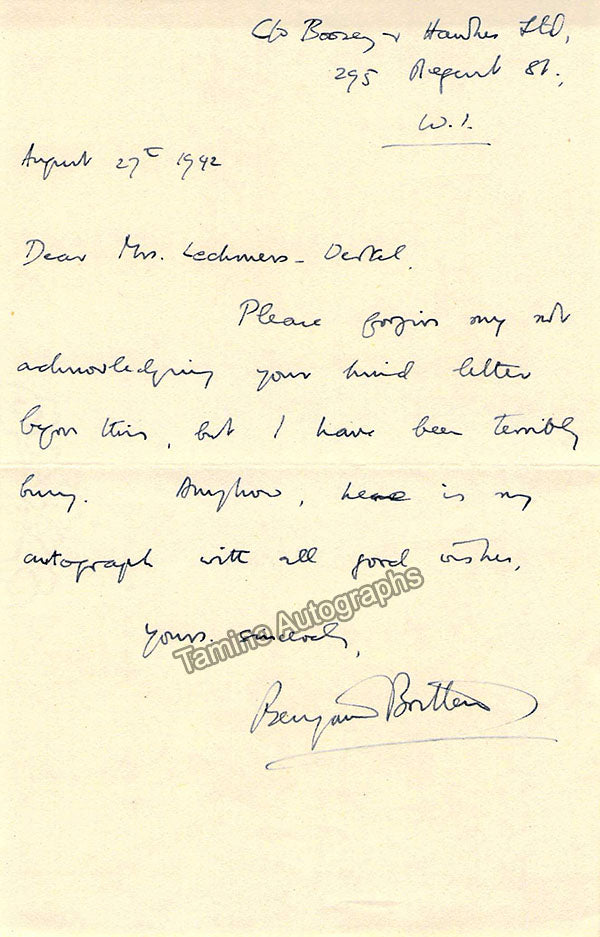 C/o Boosey & Hawkes Ltd,
295 Regent St.,
W.1.
August 27th 1942
Dear Mrs. Lechmere-Oertel,
Please forgive my not
acknowledging your kind letter
before this, but I have been terribly
busy. Anyhow, here is my
autograph with all good wishes,
Yours sincerely,
Tamino Autographs
Benjamin Britten